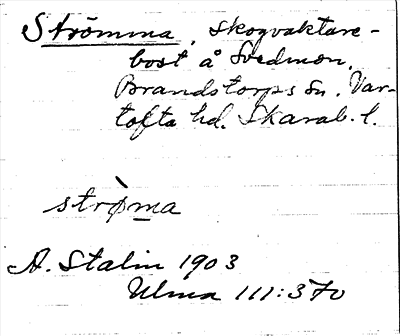 Strömma, skogvaktare-
bost å Svedmon,
Brandstorps sn. Var-
tofta hd. Skarab. l.
strø̀ma
A. Stalin 1903
Ulma 111:370